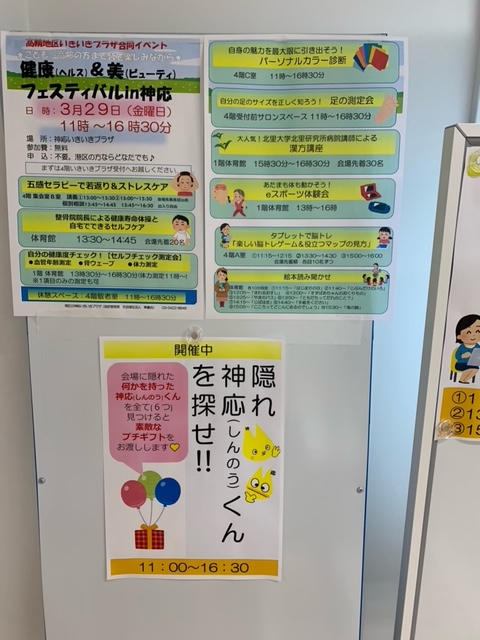 高輪地区いきいきプラザ合同イベント
健康(ヘルス)&美(ビューティ)
フェスティバルin神応
日 時:3月29日(金曜日)
11時～16時30分
場 所:神応いきいきプラザ
参加費:無料
申 込:不要。港区の方ならどなたでも♪
まずは4階いきいきプラザ受付へお越しください。
五感セラピーで若返り&ストレスケア
整骨院院長による健康寿命体操と
自宅でできるセルフケア
体育館 13:30～14:45 会場先着20名
自分の健康度チェック!【セルフチェック測定会】
●血管年齢測定 ●骨ウェーブ ●体力測定
1階 体育館 13時30分～16時30分(体力測定11時～)
※1項目のみの測定も可
休憩スペース:4階敬老室 11時～16時30分
自身の魅力を最大限に引き出そう!
パーソナルカラー診断
4階C室 11時～16時30分
自分の足のサイズを正しく知ろう! 足の測定会
4階受付前サロンスペース 11時～16時30分
大人気!北里大学北里研究所病院講師による
漢方講座
1階体育館 15時30分～16時30分 会場先着30名
あたまも体も動かそう!
eスポーツ体験会
1階体育館 13時～16時
タブレットで脳トレ
「楽しい脳トレゲーム&役立つマップの見方」
4階A室 ①11:15～12:15 ②13:30～14:30 ③15:00～16:00
会場先着順 各回10名ずつ
絵本読み聞かせ
開催中
隠れ
神応(しんのう)くん
を探せ!!
会場に隠れた
何かを持った
神応(しんのう)くん
を全て(6つ)
見つけると
素敵な
プチギフトを
お渡しします
11:00～16:30
①1
②13
③15